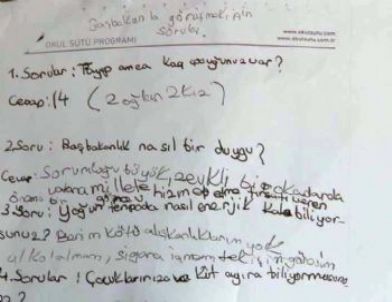 Başbakanla görüşmek için
sorular
OKUL SÜTÜ PROGRAMI
www.okulsutu.com
www.okulsutu.com.tr
1. Sorular: Tayyip amca kaç çocuğunuz var?
Cevap: 4 (2 oğlan 2 kız)
2. Soru: Başbakanlık nasıl bir duygu?
Cevap: Sorumluğu büyük, zevkli, bi o kadarda
vatana millete hizmet etme veren
önemli bir görev
3. Soru: Yoğun tempoda nasıl enerjik kalabiliyor-
sunuz? Benim kötü alışkanlıklarım yok
alkol almam, sigara içmem tek işim
4. Sorular: Çocuklarınıza vakit ayıra biliyormusunu